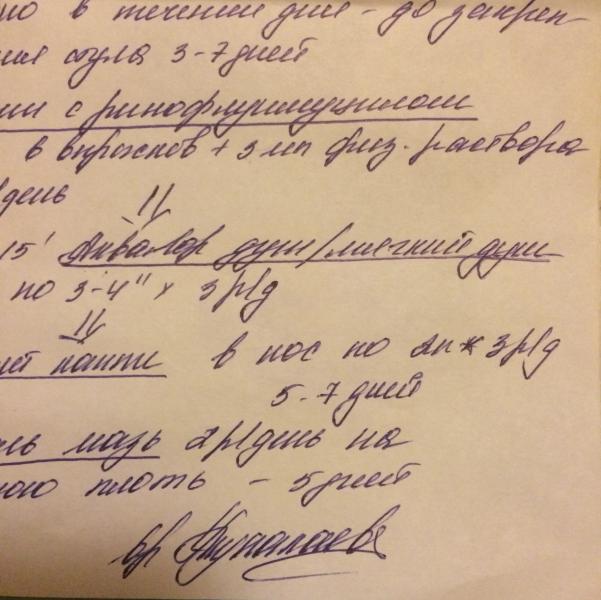 но в течении дня - до закреп-
ния стула 3-7 дней
ии с ринофлуимуцилом
8 впрысков + 3 мл физ. раствора
день
15' Аквалор душ/мягкий душ
по 3-4" x 3 р/д
в нос по 2к * 3 р/д
5-7 дней
мазь 2 р/день на
ную плоть - 5 дней
вр